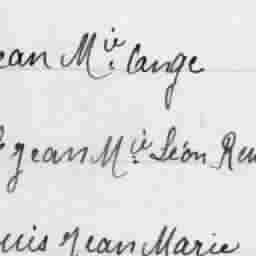 ean M.ie Cange
Jean M.ie Léon Ren
ouis Jean Marie